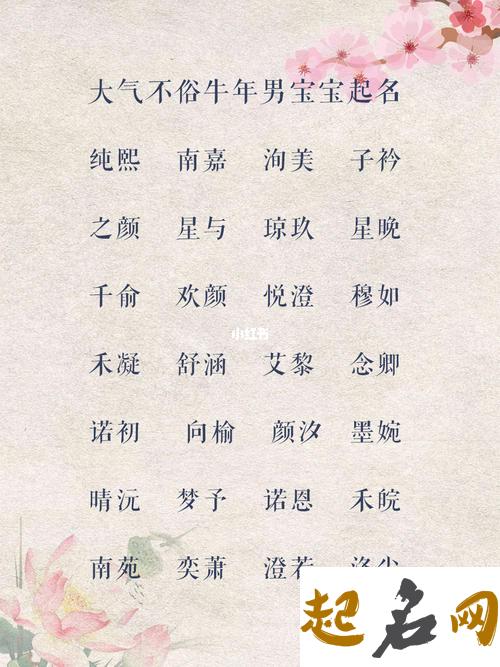 大气不俗牛年男宝宝起名
纯熙 南嘉 洵美 子衿
之颜 星与 琼玖 星晚
千俞 欢颜 悦澄 穆如
小红书
禾凝 舒涵 艾黎 念卿
诺初 向榆 颜汐 墨婉
晴沅 梦予 诺恩 禾皖
南苑 奕萧 澄若
起名网